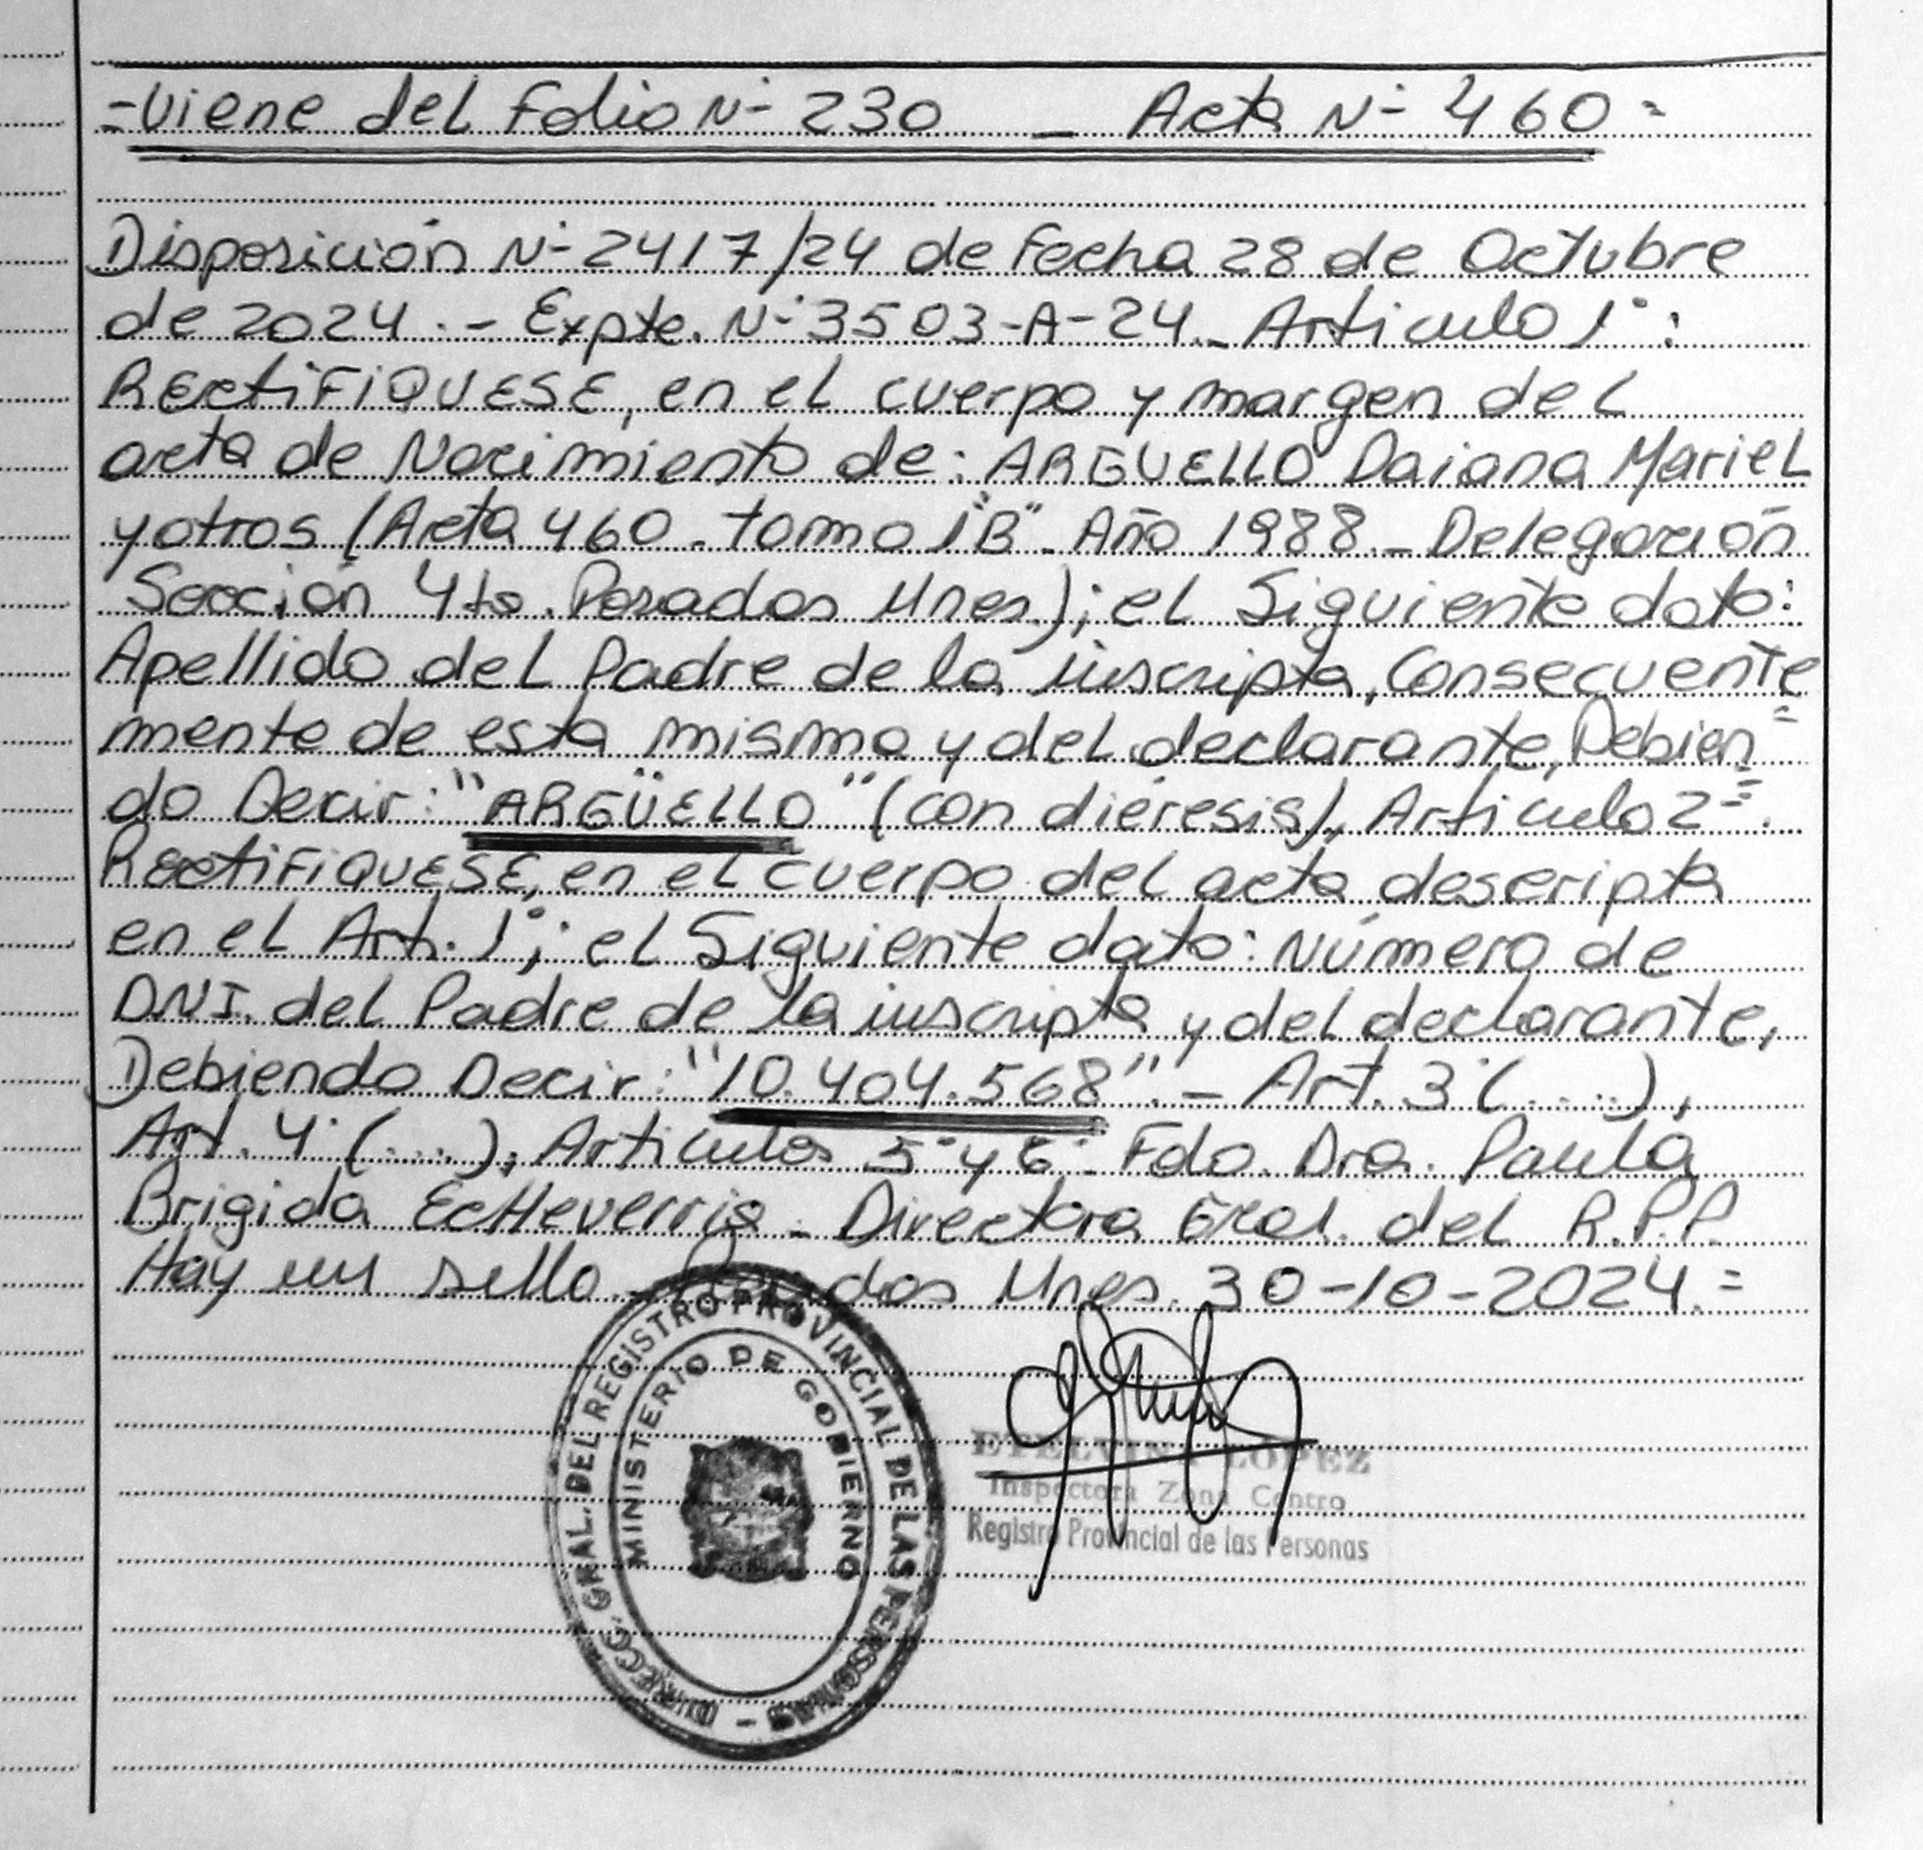 =Viene del Folio Nº 230 _ Acta Nº 460=
Disposición Nº 2417/24 de Fecha 28 de Octubre
de 2024.- Expte. Nº 3503-A-24._ Articulo 1º:
RECtiFIQUESE, en el cuerpo y margen del
acta de Nacimiento de: ARGUELLO Daiana Mariel
y otros (Acta 460. tomo 1"B". Año 1988._ Delegación
Sección 4ta. Posadas Mnes.); el Siguiente dato:
Apellido del Padre de la inscripta, Consecuente
mente de esta misma y del declarante, Debien=
do Decir: "ARGÜELLO" (con diéresis), Articulo 2º.
RECtiFIQUESE, en el cuerpo del acta descripta
en el Art. 1º; el Siguiente dato: Número de
DNI. del Padre de la inscripta y del declarante,
Debiendo Decir: "10.404.568".- Art. 3º (....),
Art. 4º (....), Articulos 5º y 6º. Fdo. Dra. Paula
Brigida Echeverria. Directora Gral. del R.P.P.
Hay un sello. Posadas Mnes. 30-10-2024.=
DIRECC. GRAL. DEL REGISTRO PROVINCIAL DE LAS PERSONAS -
MINISTERIO DE GOBIERNO
ETELVINA LOPEZ
Inspectora Zona Centro
Registro Provincial de las Personas